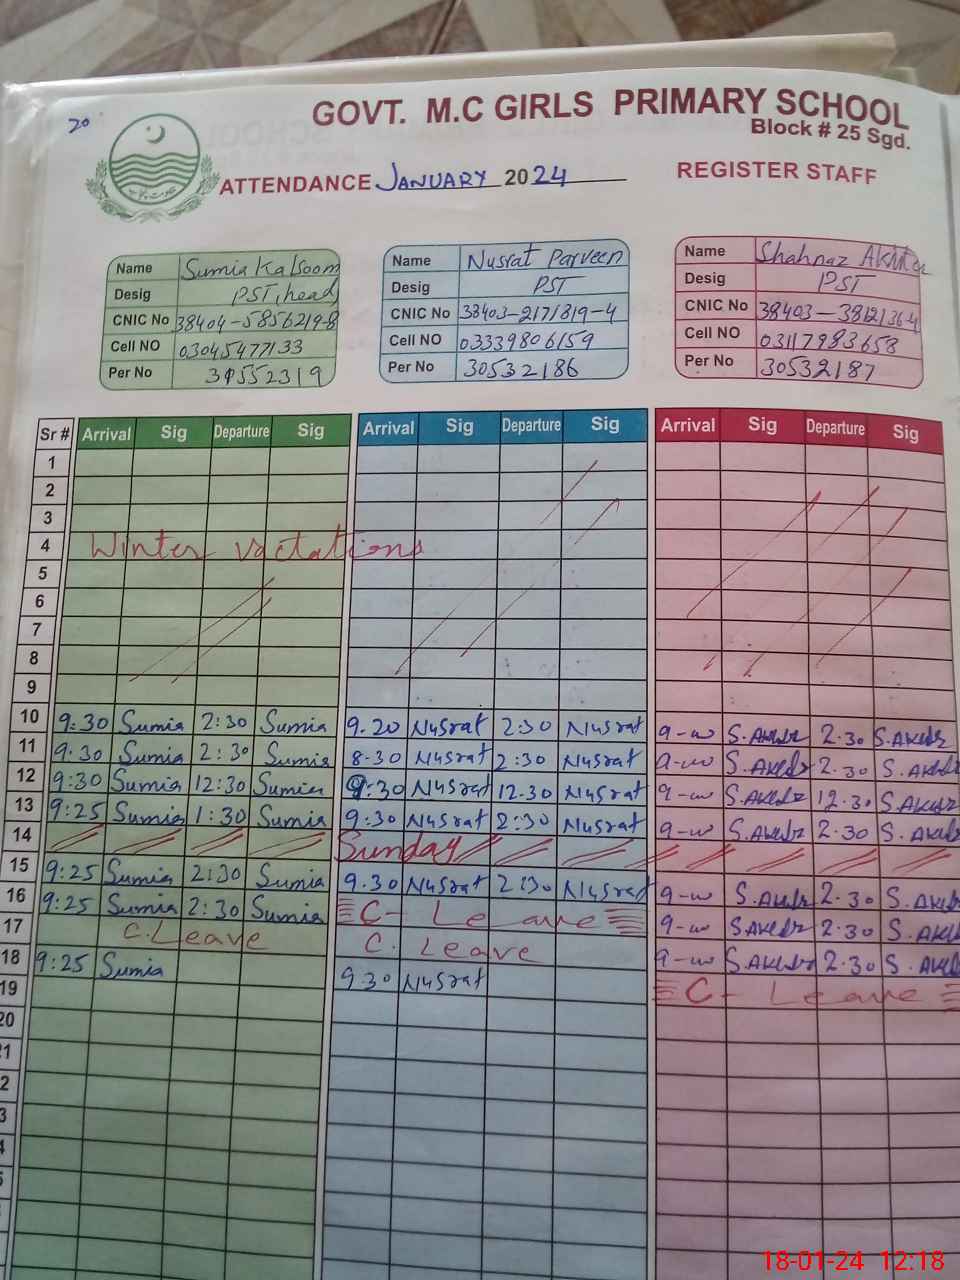 20
GOVT. M.C GIRLS PRIMARY SCHOOL
Block # 25 Sgd.
ATTENDANCE JANUARY 2024 REGISTER STAFF
Name Sumia Kalsoom Name Nusrat Parveen Name Shahnaz Akhtar
Desig PST, head Desig PST Desig PST
CNIC No 38404-5856219-8 CNIC No 38403-2171819-4 CNIC No 38403-3812136-4
Cell NO 03045477133 Cell NO 03339806159 Cell NO 03117983658
Per No 30552319 Per No 30532186 Per No 30532187
Sr # Arrival Sig Departure Sig Arrival Sig Departure Sig Arrival Sig Departure Sig
1
2
3
4 Winter vactations
5
6
7
8
9
10 9:30 Sumia 2:30 Sumia 9.20 Nusrat 2:30 Nusrat 9-00 2.30
11 9:30 Sumia 2:30 Sumia 8-30 Nusrat 2:30 Nusrat 9-00 2.30
12 9:30 Sumia 12:30 Sumia 9:30 Nusrat 12.30 Nusrat 9-00 12.30
13 9:25 Sumia 1:30 Sumia 9:30 Nusrat 2:30 Nusrat 9-00 2.30
14 Sunday
15 9:25 Sumia 2:30 Sumia 9.30 Nusrat 2:30 Nusrat 9-00 2.30
16 9:25 Sumia 2:30 Sumia C- Leave 9-00 2.30
17 C.Leave C. Leave 9-00 2.30
18 9:25 Sumia 9.30 Nusrat C- Leave
19
20
18-01-24 12:18